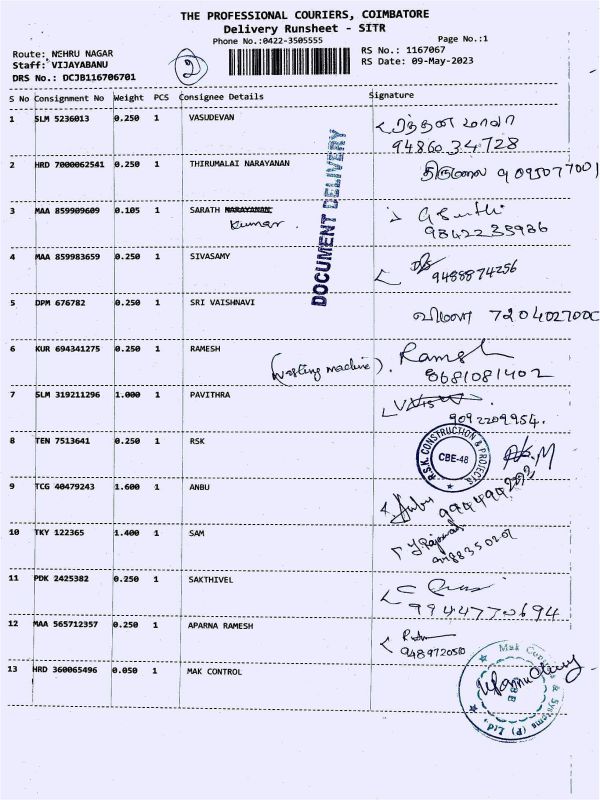 THE PROFESSIONAL COURIERS, COIMBATORE
Delivery Runsheet - SITR
Phone No.:0422-3505555 Page No.:1
Route: NEHRU NAGAR RS No.: 1167067
Staff: VIJAYABANU RS Date: 09-May-2023
DRS No.: DCJB116706701
2
S No Consignment No Weight PCS Consignee Details Signature
1 SLM 5236013 0.250 1 VASUDEVAN
9486034728
2 HRD 7000062541 0.250 1 THIRUMALAI NARAYANAN
திருமலை 9095077001
3 MAA 859909609 0.105 1 SARATH NARAYANAN
Kumar
9842235986
DOCUMENT DELIVERY
4 MAA 859983659 0.250 1 SIVASAMY
9488874256
5 DPM 676782 0.250 1 SRI VAISHNAVI
விமலா 720402700
6 KUR 694341275 0.250 1 RAMESH
(Washing machine). Ramesh
8681081402
7 SLM 319211296 1.000 1 PAVITHRA
9092209954.
8 TEN 7513641 0.250 1 RSK
R.S.K. CONSTRUCTION & PROJECTS
CBE-48
9 TCG 40479243 1.600 1 ANBU
Anbu
10 TKY 122365 1.400 1 SAM
11 PDK 2425382 0.250 1 SAKTHIVEL
9944770694
12 MAA 565712357 0.250 1 APARNA RAMESH
13 HRD 360065496 0.050 1 MAK CONTROL